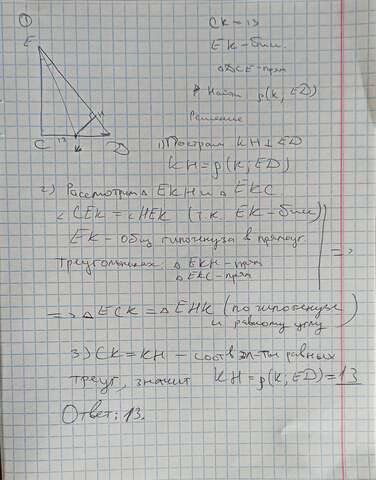 ①
CK = 13
EK - бис.
△DCE - прям
Найти ρ(K; ED)
Решение
E
H
C 13 K D
1) Построим KH ⊥ ED
KH = ρ(K; ED)
2) Рассмотрим △ EKH и △ EKC
∠ CEK = ∠ HEK (т.к. EK - бис)
EK - общ гипотенуза в прямоуг.
треугольниках △ EKH - прям
△ EKC - прям
=>
=> △ ECK = △ EHK (по гипотенузе
и равному углу)
3) CK = KH - соотв эл-ты равных
треуг, значит KH = ρ(K; ED) = 13
Ответ: 13.